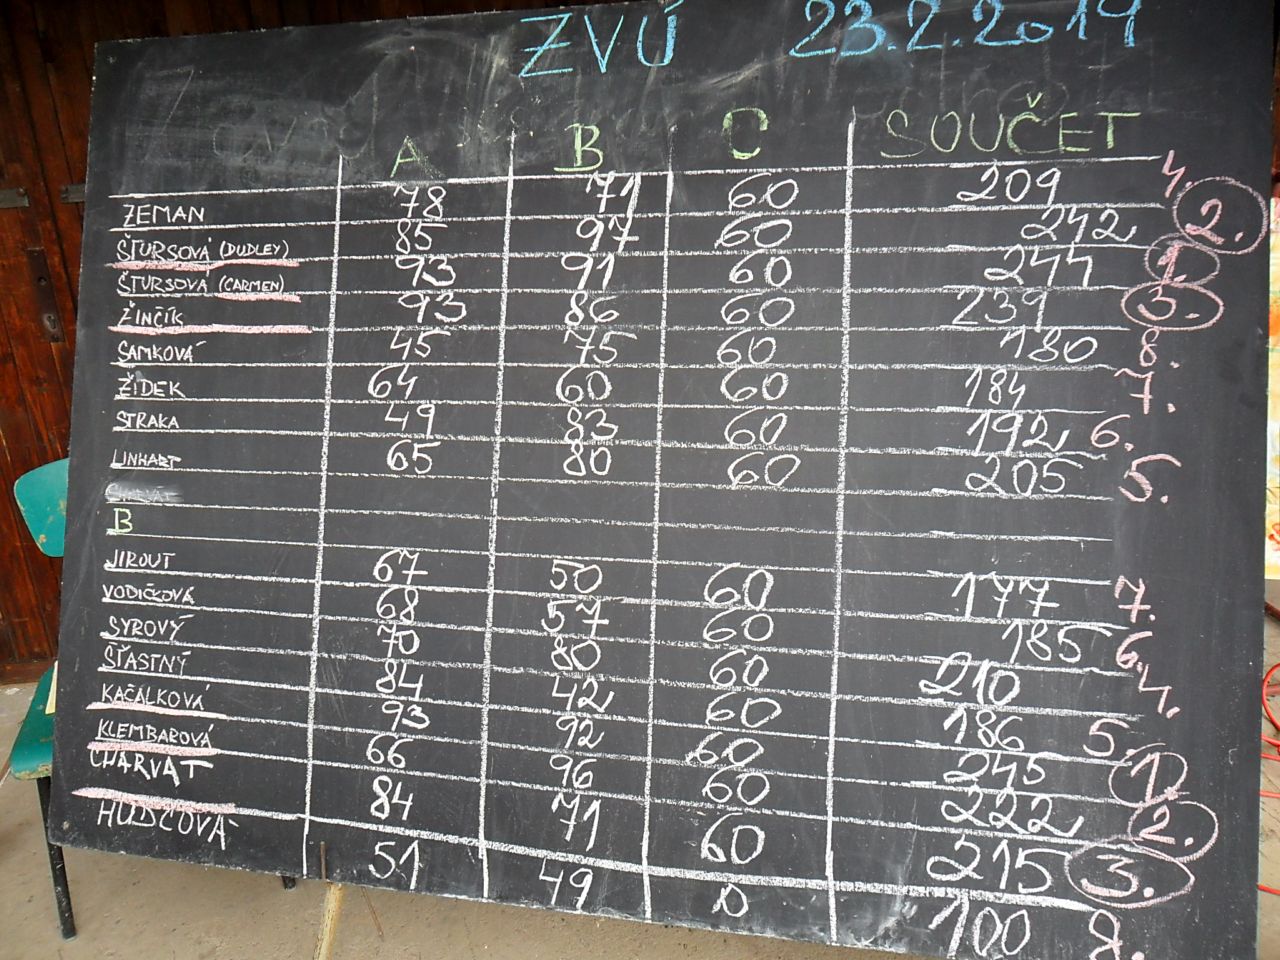 ZVÚ 23.2.2019
A B C SOUČET
ZEMAN 78 71 60 209 4.
ŠTURSOVÁ (DUDLEY) 85 97 60 242 2.
ŠTURSOVÁ (CARMEN) 93 91 60 244 1.
ŽINČÍK 93 86 60 239 3.
SAMKOVÁ 45 75 60 180 8.
ŽÍDEK 64 60 60 184 7.
STRAKA 49 83 60 192 6.
LINHART 65 80 60 205 5.
B
JIROUT 67 50 60 177 7.
VODIČKOVÁ 68 57 60 185 6.
SYROVÝ 70 80 60 210 4.
ŠŤASTNÝ 84 42 60 186 5.
KAČÁLKOVÁ 93 92 60 245 1.
KLEMBAROVÁ 66 96 60 222 2.
CHARVÁT 84 71 60 215 3.
HUDCOVÁ 51 49 0 100 8.